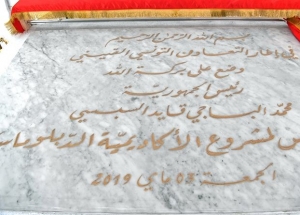 بسم الله الرحمن الرحيم
في إطار التعاون التونسي الصيني
وضع على بركة الله
رئيس الجمهورية
محمد الباجي قايد السبسي
لمشروع الأكاديمية الدبلوماسية
الجمعة 03 ماي 2019